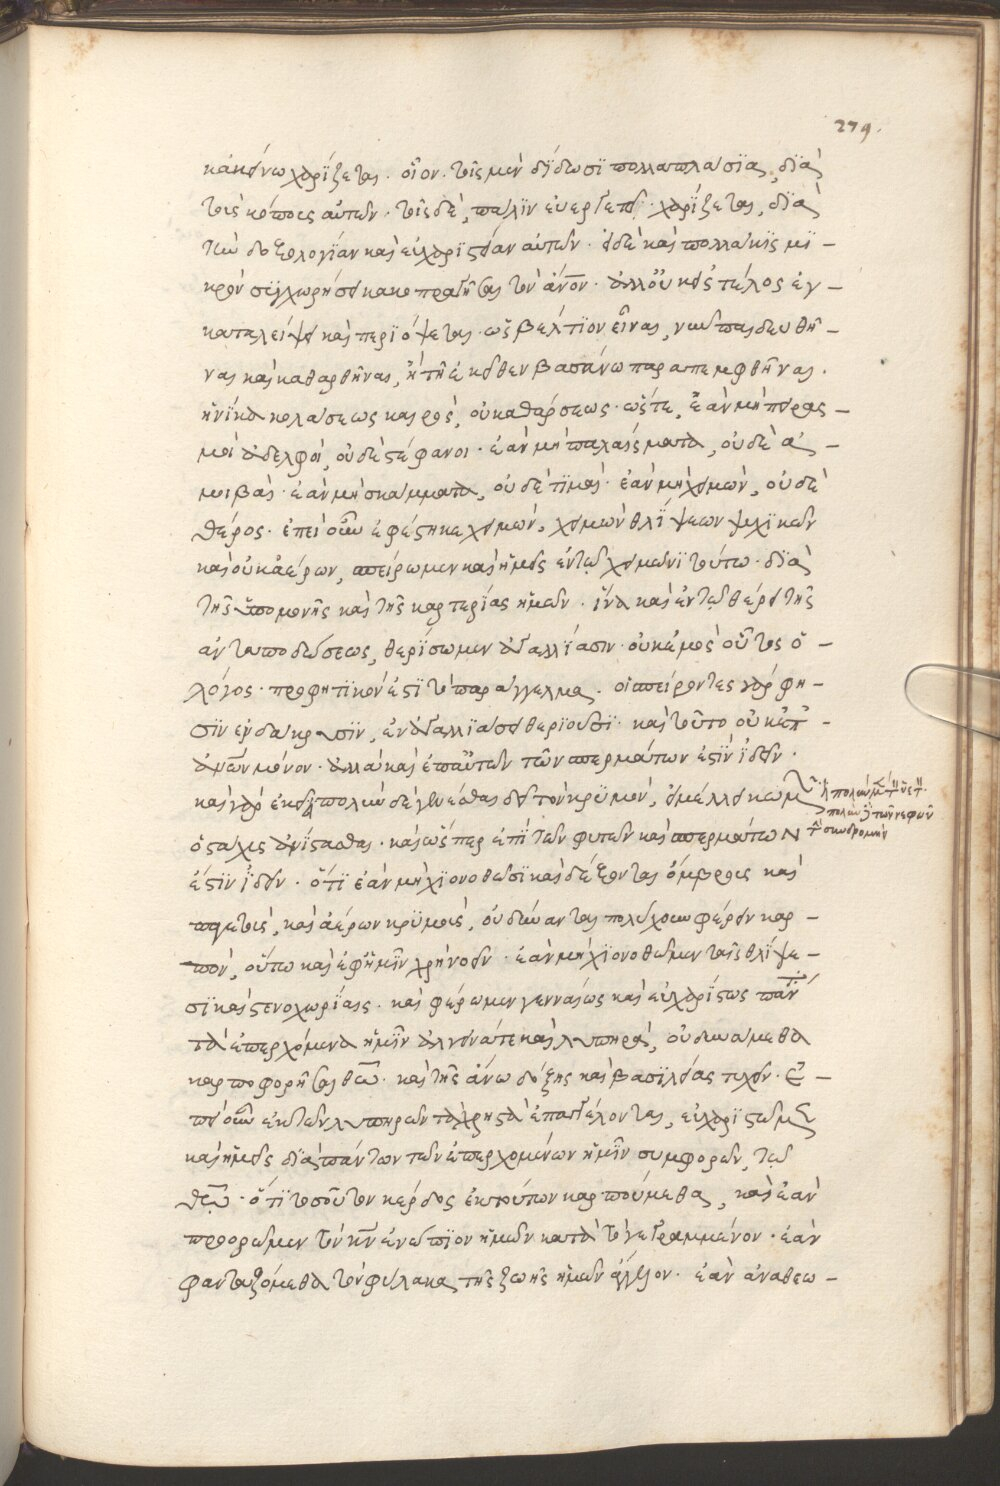 279.
κἀκείνω χαρίζεται. οἷον. τοῖς μὲν δίδωσι πολλαπλασία, διὰ
τοὺς κόπους αὐτῶν. τοῖς δὲ, πάλιν εὐεργετεῖ. χαρίζεται, διὰ
τὴν δοξολογίαν καὶ εὐχαριστίαν αὐτῶν. ὁ δὲ καὶ πολλάκις μι-
κρὸν συγχωρήσει κακοπραγῆσαι τὸν ἄνον. ἀλλ' οὐκ εἰς τέλος ἐγ-
καταλείψει καὶ περιόψεται. ὡς βέλτιον εἶναι, νῦν παιδευθῆ-
ναι καὶ καθαρθῆναι, ἢ τῆ ἐκεῖθεν βασάνω παραπεμφθῆναι.
ἡνίκα κολάσεως καιρὸς, οὐ καθάρσεως. ὥστε, ἐὰν μὴ πειρασ-
μοὶ ἀδελφοὶ, οὐδὲ στέφανοι. ἐὰν μὴ παλαίσματα, οὐδὲ ἀ-
μοιβαὶ. ἐὰν μὴ σκάμματα, οὐδὲ τιμαὶ. ἐὰν μὴ χειμὼν, οὐδὲ
θέρος. ἐπεὶ οὖν ἐφέστηκε χειμὼν, χειμὼν θλίψεων ψυχικῶν
καὶ οὐκ ἀέρων, σπείρωμεν καὶ ἡμεῖς ἐν τῷ χειμῶνι τούτω. διὰ
τῆς ὑπομονῆς καὶ τῆς καρτερίας ἡμῶν. ἵνα καὶ ἐν τῷ θέρει τῆς
ἀνταποδώσεως, θερίσωμεν ἀγαλλίασιν. οὐκ ἐμὸς οὗτος ὁ
λόγος. προφητικὸν ἐστὶ τὸ παράγγελμα. οἱ σπείροντες γὰρ φη-
σὶν ἐν δάκρυσιν, ἐν ἀγαλλιάσει θεριοῦσι. καὶ τοῦτο οὐκ ἐπ'
ἀνῶν μόνον. ἀλλὰ καὶ ἐπ' αὐτῶν τῶν σπερμάτων ἐστὶν ἰδεῖν.
καὶ γὰρ ἐκεῖ πολὺν δέχεσθαι δεῖ τὸν κρυμὸν, εἰ μέλλει κωμ
ὁ στάχυς ἀνίστασθαι. καὶ ὥσπερ ἐπὶ τῶν φυτῶν καὶ σπερμάτων
ἐστὶν ἰδεῖν. ὅτι ἐὰν μὴ χιονοθῶσι καὶ δέξονται ὄμβρους καὶ
παγετοὺς, καὶ ἀέρων κρυμοὺς, οὐ δύνανται πολύχουν φέρειν καρ-
πὸν, οὕτω καὶ ἐφ' ἡμῖν χρὴ νοεῖν. ἐὰν μὴ χιονοθῶμεν ταῖς θλίψε-
σι καὶ στενοχωρίαις. καὶ φέρωμεν γενναίως καὶ εὐχαρίστως πάν
τὰ ἐπερχόμενα ἡμῖν ἀλγεινά τε καὶ λυπηρὰ, οὐ δυνάμεθα
καρποφορῆσαι θεῶ. καὶ τῆς ἄνω δόξης καὶ βασιλείας τυχεῖν. ἐ-
πεὶ οὖν ἐκ τῶν λυπηρῶν τὰ χρηστὰ ἐπαγγέλονται, εὐχαριστῶμεν
καὶ ἡμεῖς διὰ πάντων τῶν ἐπερχομένων ἡμῖν συμφορῶν, τῷ
θεῶ. ὅτι τοσοῦτον κέρδος ἐκ τούτων καρπούμεθα, καὶ ἐὰν
προορῶμεν τὸν κν ἐνώπιον ἡμῶν κατὰ τὸ γεγραμμένον. ἐὰν
φανταζόμεθα τὸν φύλακα τῆς ζωῆς ἡμῶν ἄγγελον. ἐὰν ἀναθεω-
πολὺν τῶν νεφῶν
συνδρομὴν